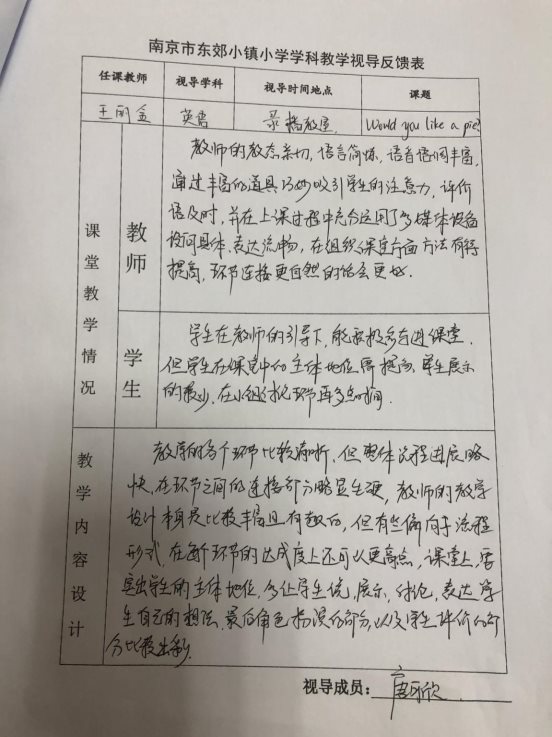 南京市东郊小镇小学学科教学视导反馈表
任课教师 视导学科 视导时间地点 课题
王丽金 英语 录播教室 Would you like a pie?
课堂教学情况
教师
教师的教态亲切，语言简炼，语音语调丰富，
通过丰富的道具巧妙吸引学生的注意力，评价
语及时，并在上课过程中充分运用了多媒体设备
提问具体，表达流畅，在组织课堂方面方法有待
提高，环节连接更自然的话会更好。
学生
学生在教师的引导下，能积极参与进课堂．
但学生在课堂中的主体地位需提高，学生展示
的较少，在小组讨论环节再多点时间．
教学内容设计
教学的各个环节比较清晰，但整体流程进展略
快，在环节之间的连接部分略显生硬，教师的教学
设计本身是比较丰富且有趣的，但有些偏向于流程
形式，在每个环节的达成度上还可以更高点，课堂上，需
突出学生的主体地位，多让学生说，展示，讨论，表达学
生自己的想法．最后角色扮演的部分，以及学生评价的部
分比较出彩．
视导成员：唐可欣